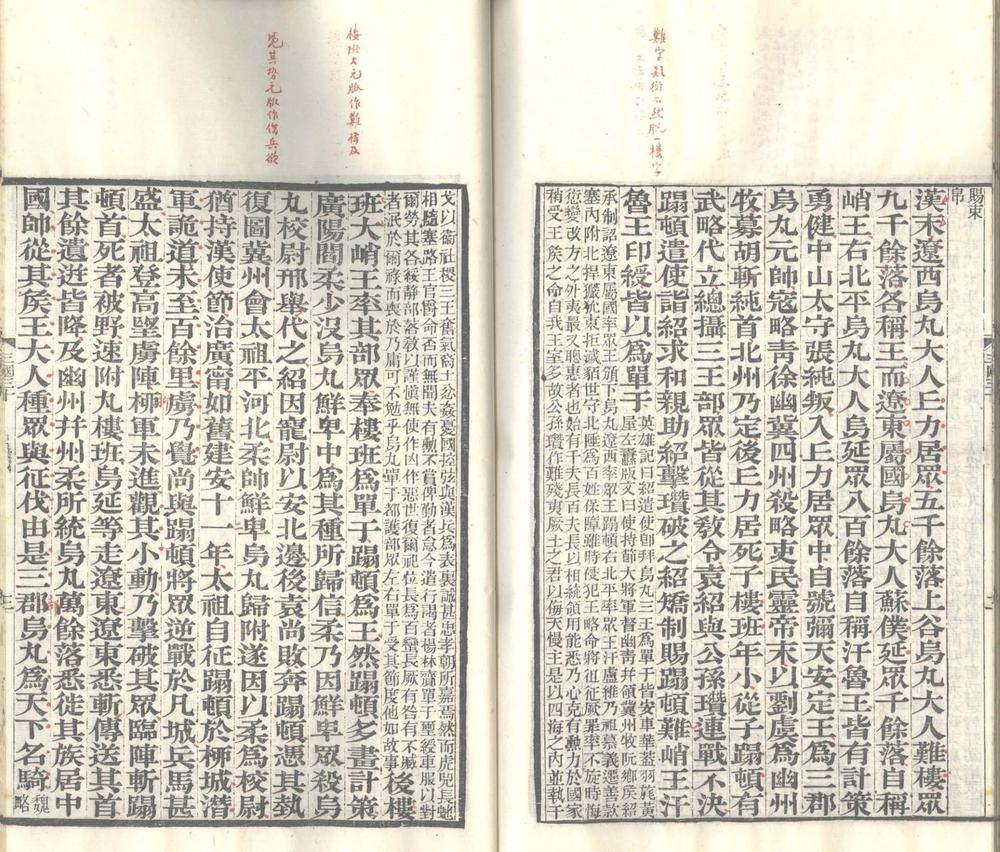 難字疑衍不然脫一樓字
樓班大元版作難樓及
覺其勢元版作僧兵欲
賜束
帛
漢末遼西烏丸大人丘力居眾五千餘落上谷烏丸大人難樓眾
九千餘落各稱王而遼東屬國烏丸大人蘇僕延眾千餘落自稱
峭王右北平烏丸大人烏延眾八百餘落自稱汗魯王皆有計策
勇健中山太守張純叛入丘力居眾中自號彌天安定王為三郡
烏丸元帥寇略青徐幽冀四州殺略吏民靈帝末以劉虞為幽州
牧募胡斬純首北州乃定後丘力居死子樓班年小從子蹋頓有
武略代立總攝三王部眾皆從其教令袁紹與公孫瓚連戰不決
蹋頓遣使詣紹求和親助紹擊瓚破之紹矯制賜蹋頓難峭王汗
魯王印綬皆以為單于
英雄記曰紹遣使即拜烏丸三王為單于皆安車華蓋羽旄黃
屋左纛版文曰使持節大將軍督幽青并領冀州牧阮鄉侯紹
承制詔遼東屬國率眾王頒下烏丸遼西率眾王蹋頓右北平率眾王汗盧維乃祖慕義遷善款
塞內附北捍玁狁東拒濊貊世守北陲為百姓保障雖時侵犯王略命將徂征厥罪率不旋時悔
愆變改方之外夷最又聰惠者也始有千夫長百夫長以相統領用能悉乃心克有勳力於國家
稍受王侯之命自我王室多故公孫瓚作難殘夷厥土之君以侮天慢主是以四海之內並執干
戈以衛社稷三王奮氣裔土忿姦憂國控弦與漢兵為表裏誠甚忠孝朝所嘉焉然而虎兕長蛇
相隨塞路王官爵命否而無聞夫有勳不賞俾勤者怠今遣行謁者楊林齎單于璽綬車服以對
爾勞其各綏靜部落教以謹慎無使作凶作慝世復爾祀位長為百蠻長厥有咎有不臧
者泯於爾祿而喪於乃庸可不勉乎烏丸單于都護部眾左右單于受其節度他如故事
後樓
班大峭王率其部眾奉樓班為單于蹋頓為王然蹋頓多畫計策
廣陽閻柔少沒烏丸鮮卑中為其種所歸信柔乃因鮮卑眾殺烏
丸校尉邢舉代之紹因寵尉以安北邊後袁尚敗奔蹋頓憑其埶
復圖冀州會太祖平河北柔帥鮮卑烏丸歸附遂因以柔為校尉
猶持漢使節治廣甯如舊建安十一年太祖自征蹋頓於柳城潛
軍詭道未至百餘里虜乃覺尚與蹋頓將眾逆戰於凡城兵馬甚
盛太祖登高望虜陣柳軍未進觀其小動乃擊破其眾臨陣斬蹋
頓首死者被野速附丸樓班烏延等走遼東遼東悉斬傳送其首
其餘遺迸皆降及幽州并州柔所統烏丸萬餘落悉徙其族居中
國帥從其侯王大人種眾與征伐由是三郡烏丸為天下名騎
魏
略